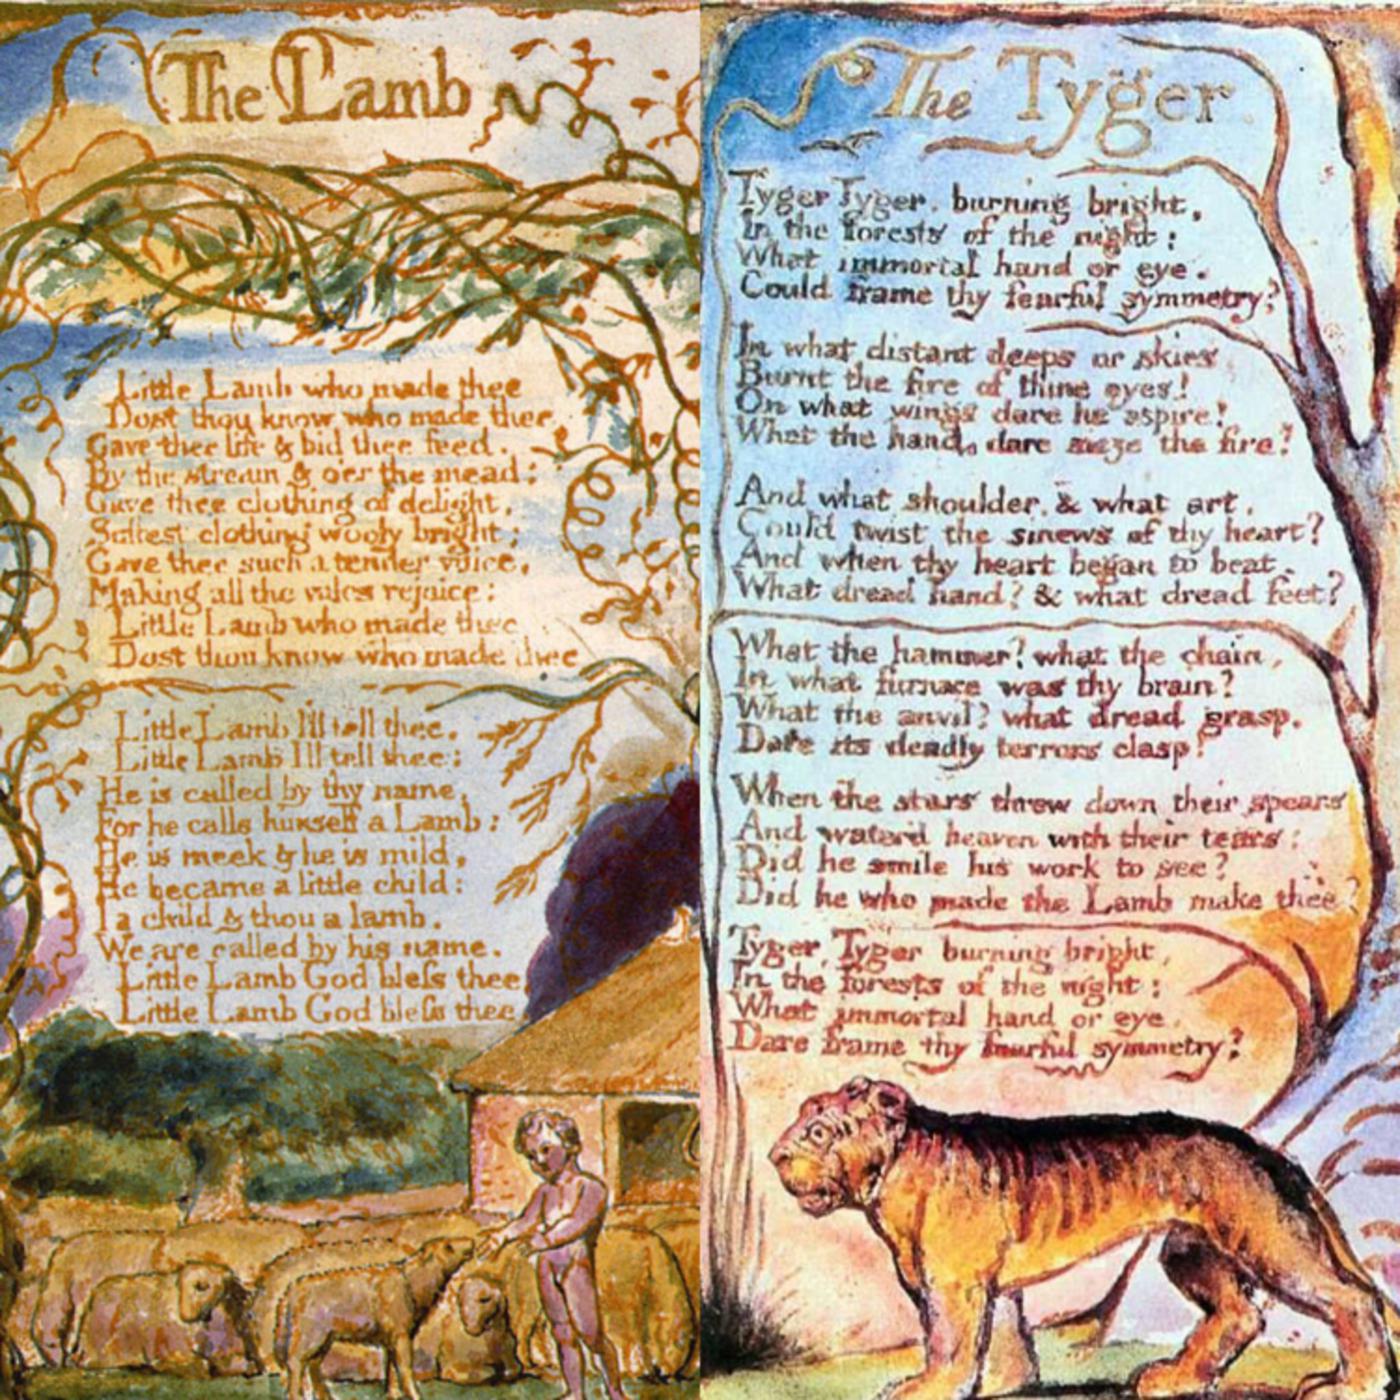 The Lamb
Little Lamb who made thee
Dost thou know who made thee
Gave thee life & bid thee feed.
By the stream & o'er the mead;
Gave thee clothing of delight,
Softest clothing wooly bright;
Gave thee such a tender voice,
Making all the vales rejoice:
Little Lamb who made thee
Dost thou know who made thee
Little Lamb I'll tell thee,
Little Lamb I'll tell thee;
He is called by thy name,
For he calls himself a Lamb:
He is meek & he is mild,
He became a little child:
I a child & thou a lamb,
We are called by his name.
Little Lamb God bless thee,
Little Lamb God bless thee.
The Tyger
Tyger Tyger, burning bright,
In the forests of the night;
What immortal hand or eye,
Could frame thy fearful symmetry?
In what distant deeps or skies
Burnt the fire of thine eyes!
On what wings dare he aspire!
What the hand, dare seize the fire?
And what shoulder, & what art,
Could twist the sinews of thy heart?
And when thy heart began to beat,
What dread hand? & what dread feet?
What the hammer? what the chain,
In what furnace was thy brain?
What the anvil? what dread grasp,
Dare its deadly terrors clasp!
When the stars threw down their spears
And water'd heaven with their tears:
Did he smile his work to see?
Did he who made the Lamb make thee?
Tyger, Tyger burning bright,
In the forests of the night;
What immortal hand or eye,
Dare frame thy fearful symmetry?